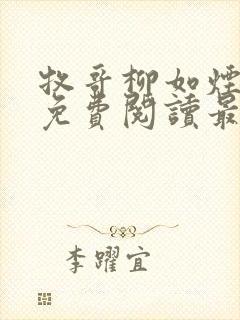 牧哥柳如煙
免費閱讀最
李躍宜